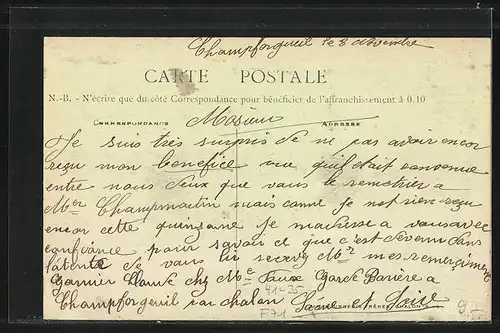 Champforgueil le 8 Novembre
CARTE POSTALE
N.-B. - N'écrire que du côté Correspondance pour bénéficier de l'affranchissement à 0.10
CORRESPONDANCE Mosieur ADRESSE
Je suis très surpris de ne pas avoir encor
reçu mon benefice vue quil etait convenue
entre nous deux que vous le remetrier a
Mer Champmartin mais come je not rien reçu
encor cette quinsane je madresse a vous avec
confiance pour savoir ce que c'est devenu dans
latente de vous lire recevez Mr mes remerciment
Garnier Claude chez Mce Faux Garde Barière a
Champforgeuil par chalon Saone et Loire
41-35
F71
9.-